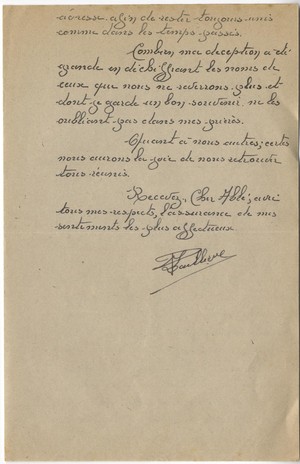 adresse afin de rester toujours unis
comme dans les temps passés.
Combien ma déception a été
grande en déchiffrant les noms de
ceux que nous ne reverrons plus et
dont je garde un bon souvenir ne les
oubliant pas dans mes prières.
Quant à nous autres; certes
nous aurons la joie de nous retrouver
tous réunis.
Recevez, Cher Abbé, avec
tous mes respects, l'assurance de mes
sentiments les plus affectueux